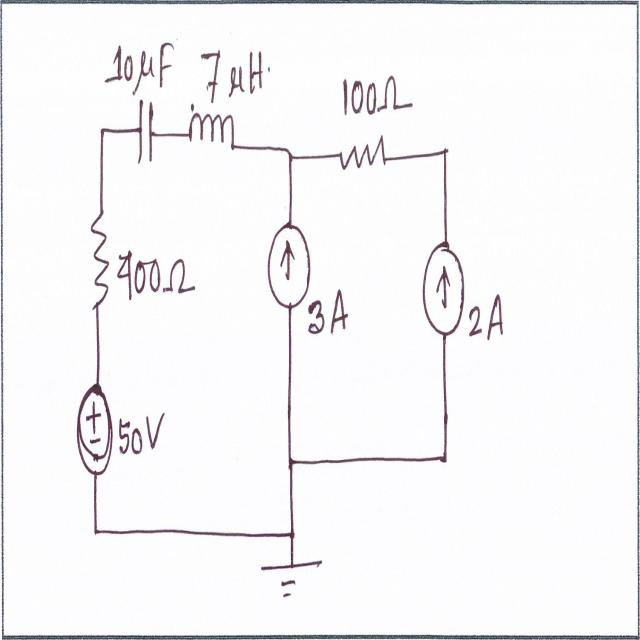 10µF 7µH
100Ω
400Ω
3A
2A
+
−
50V